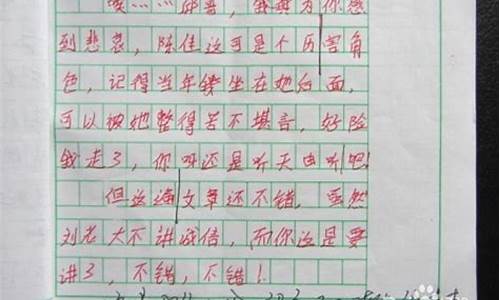 唉……邱哥，我真为你感
到悲哀，陈佳这可是个历害角
色，记得当年镂坐在她后面，
可以被她整得苦不堪言，好险
我走了，你呀还是听天由命吧!
但这篇文章还不错，虽然
刘老大不讲诚信，而你还是要
讲了，不错，不错!